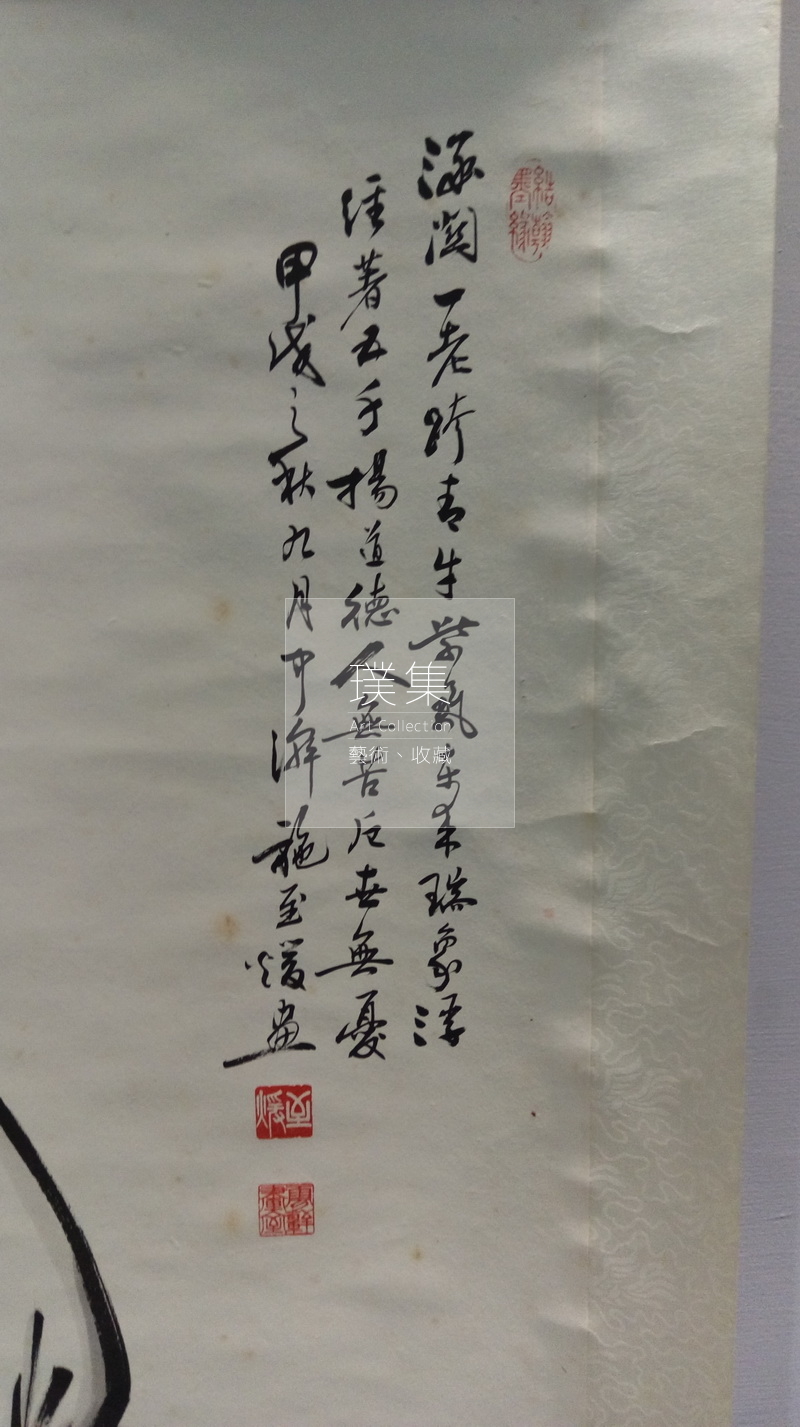 涵關一老跨青牛紫氣東來瑞象浮
經著五千揚道德人無苦厄世無憂
甲戌之秋九月中澣施至煖畫
結翰墨緣
至煖
璞集
Art Collection
藝術、收藏